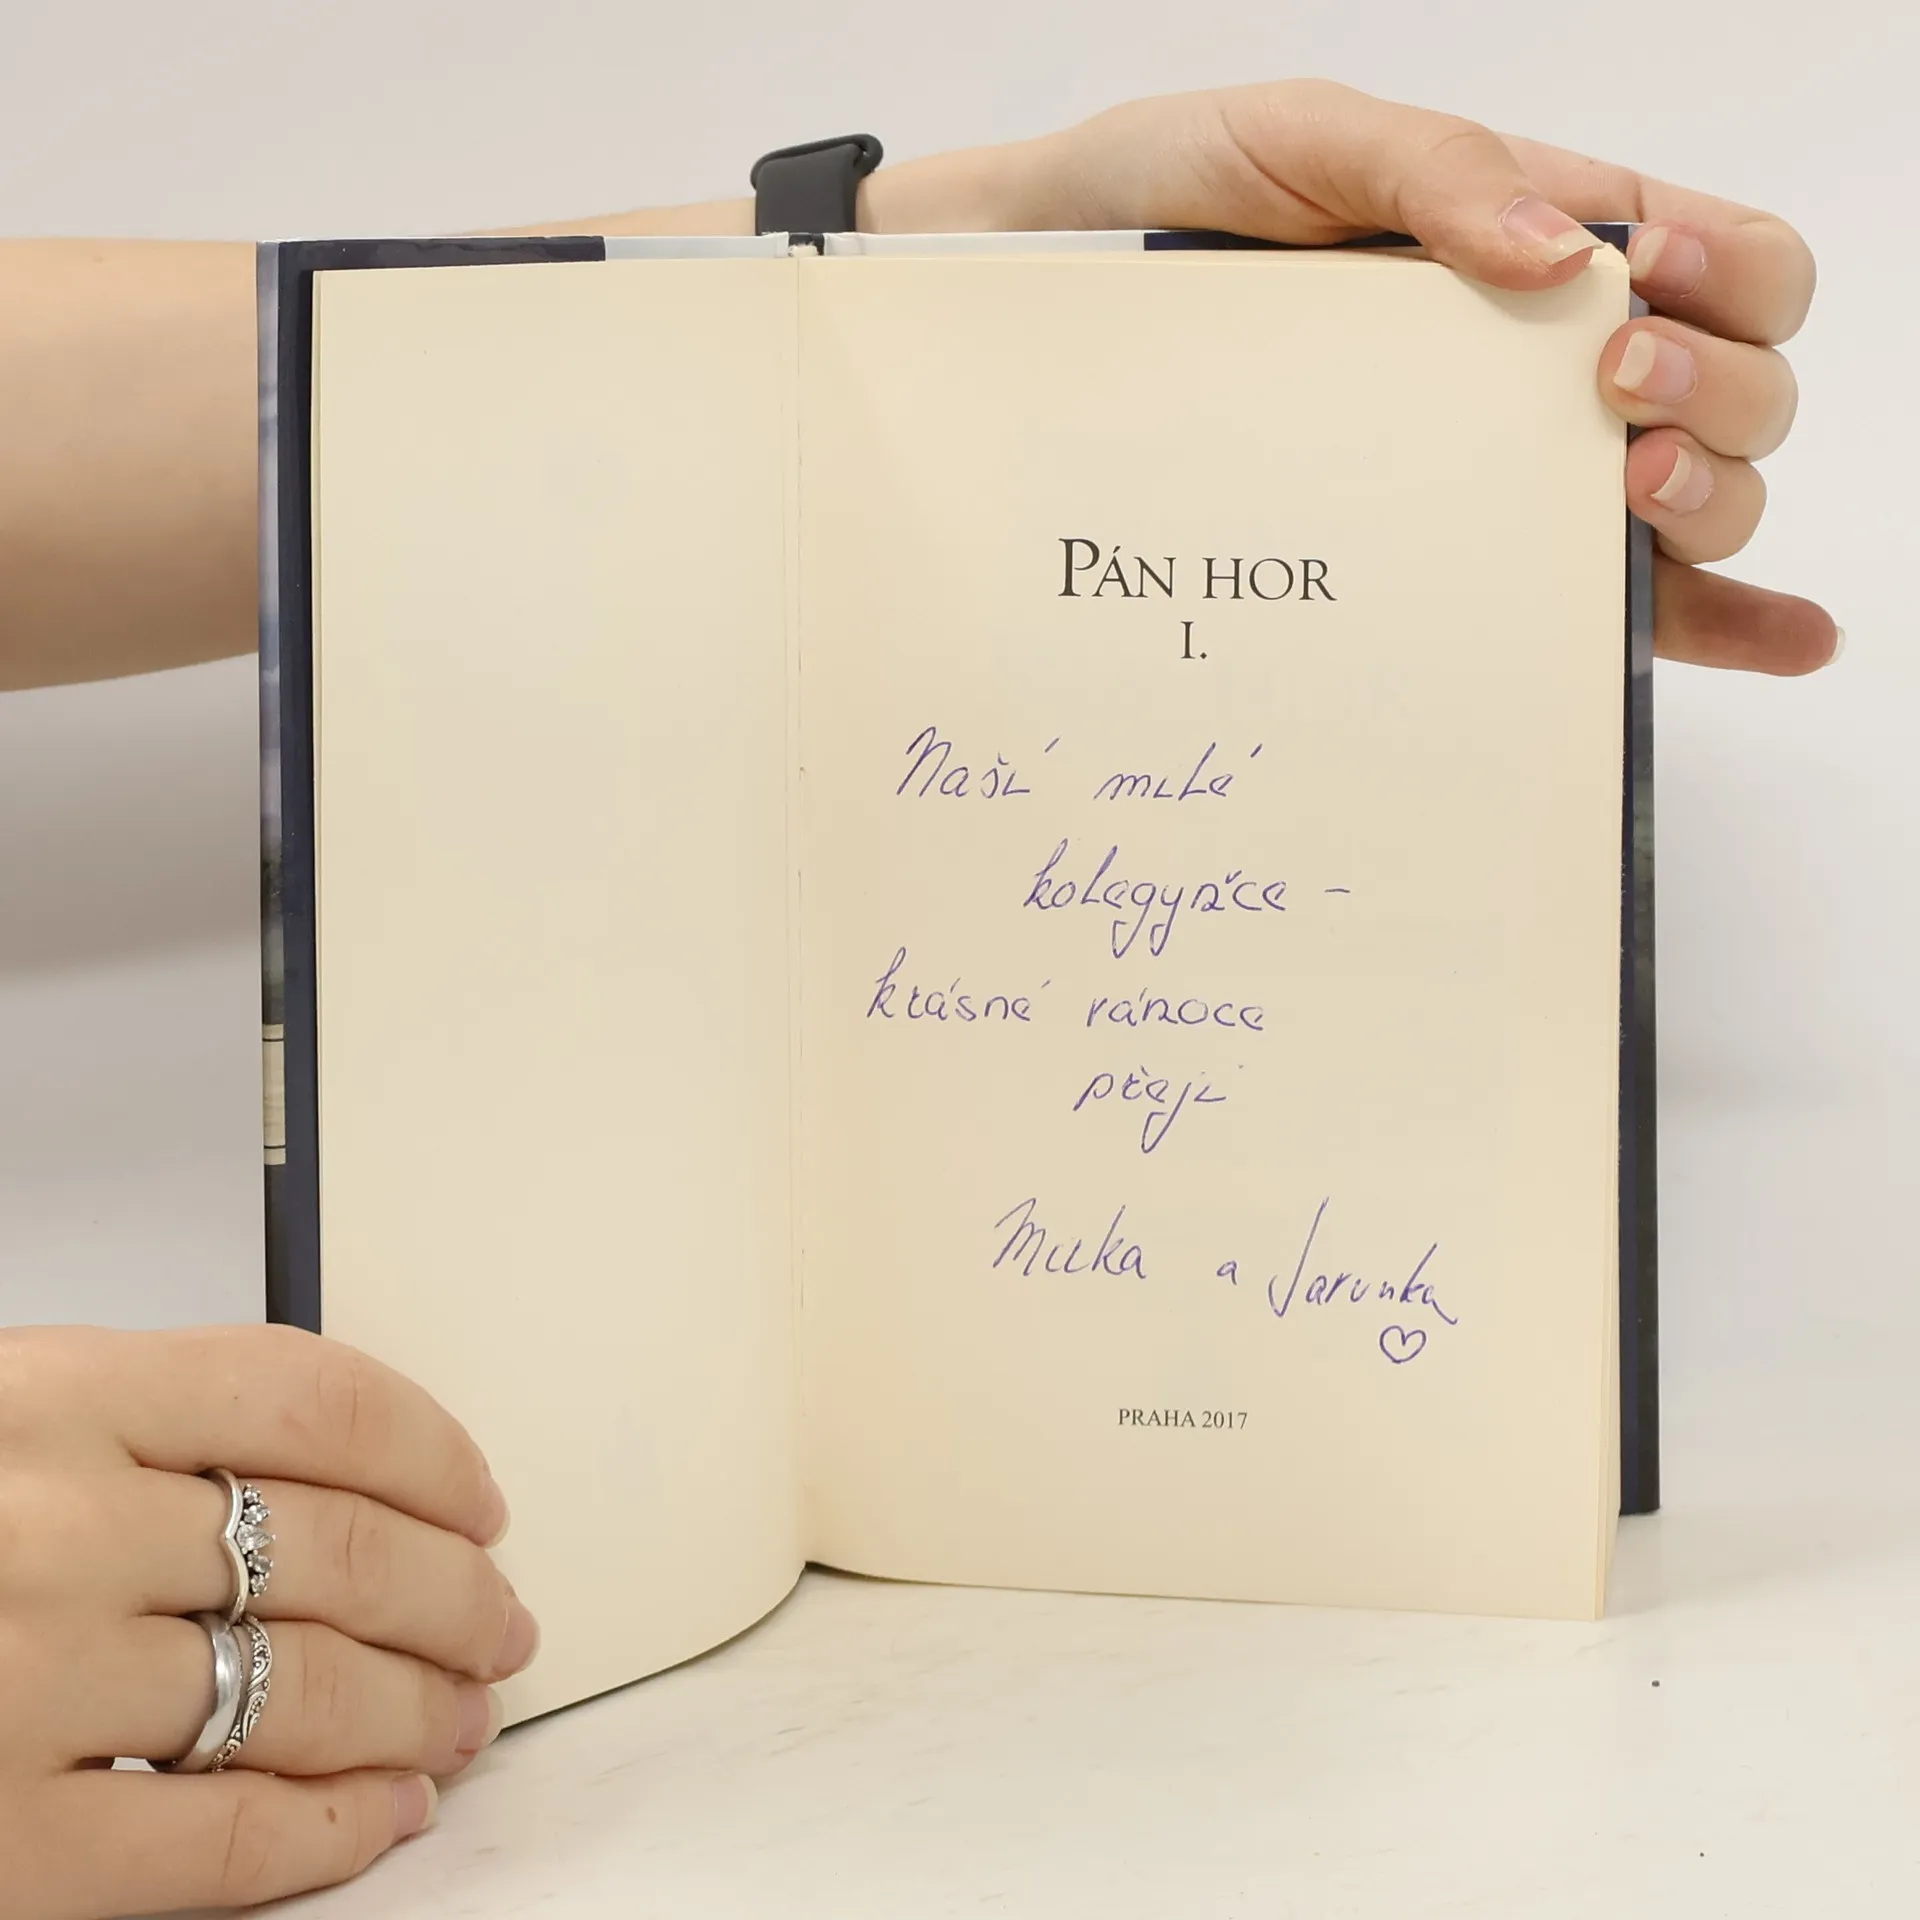 PÁN HOR
I.
Naší milé
kolegyňce –
krásné vánoce
přejí
Milka a Jarunka
♡
PRAHA 2017